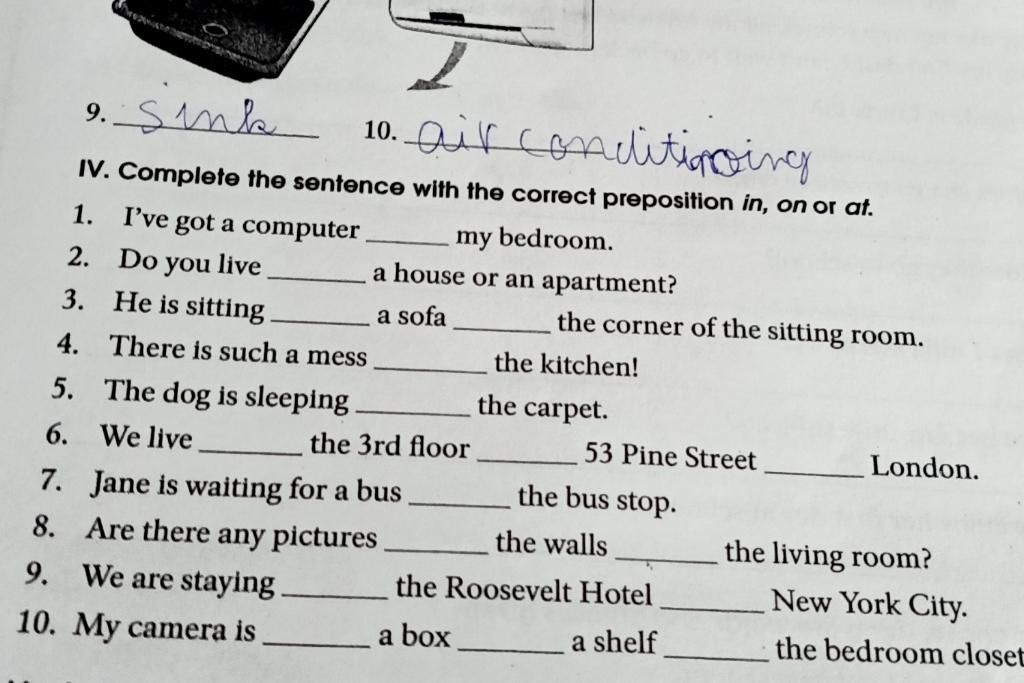 9. sink 10. air conditioning
IV. Complete the sentence with the correct preposition in, on or at.
1. I've got a computer ______ my bedroom.
2. Do you live ______ a house or an apartment?
3. He is sitting ______ a sofa ______ the corner of the sitting room.
4. There is such a mess ______ the kitchen!
5. The dog is sleeping ______ the carpet.
6. We live ______ the 3rd floor ______ 53 Pine Street ______ London.
7. Jane is waiting for a bus ______ the bus stop.
8. Are there any pictures ______ the walls ______ the living room?
9. We are staying ______ the Roosevelt Hotel ______ New York City.
10. My camera is ______ a box ______ a shelf ______ the bedroom closet